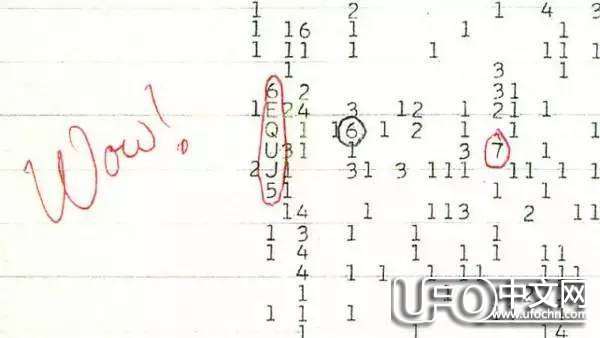 1 2 1 4 3
1 16 1 1 1
1 11 1 1 11 1
1 3 1
6 2 31
1 E 24 3 12 1 21 1
Q 1 16 1 2 1 1 1
U 31 1 3 7 1
2 J 1 31 3 111 11 1 1
5 1 1 1
Wow!
14 1 113 2 11
1 3 1 1 1
1 4 1 1 1 11
4 1 1 1 11
1
1 1 1
1 1 14
UFO中文网
www.ufochn.com